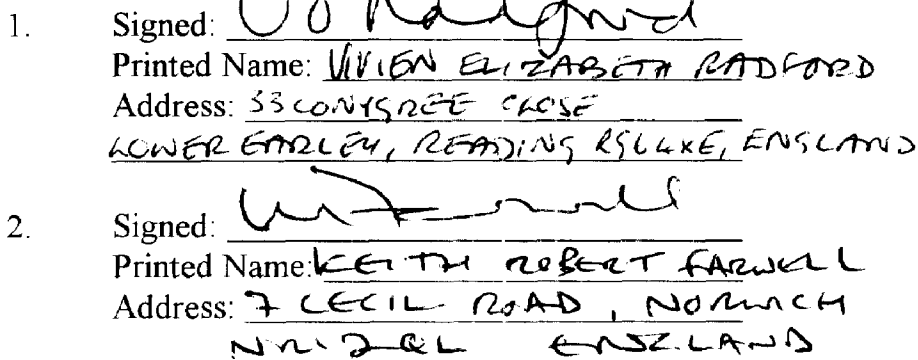 1. Signed: V E Radford
Printed Name: VIVIEN ELIZABETH RADFORD
Address: 33 CONYGREE CLOSE
LOWER EARLEY, READING RG6 4XE, ENGLAND
2. Signed:
Printed Name: KEITH ROBERT FARWELL
Address: 7 CECIL ROAD, NORWICH
NR1 2QL ENGLAND